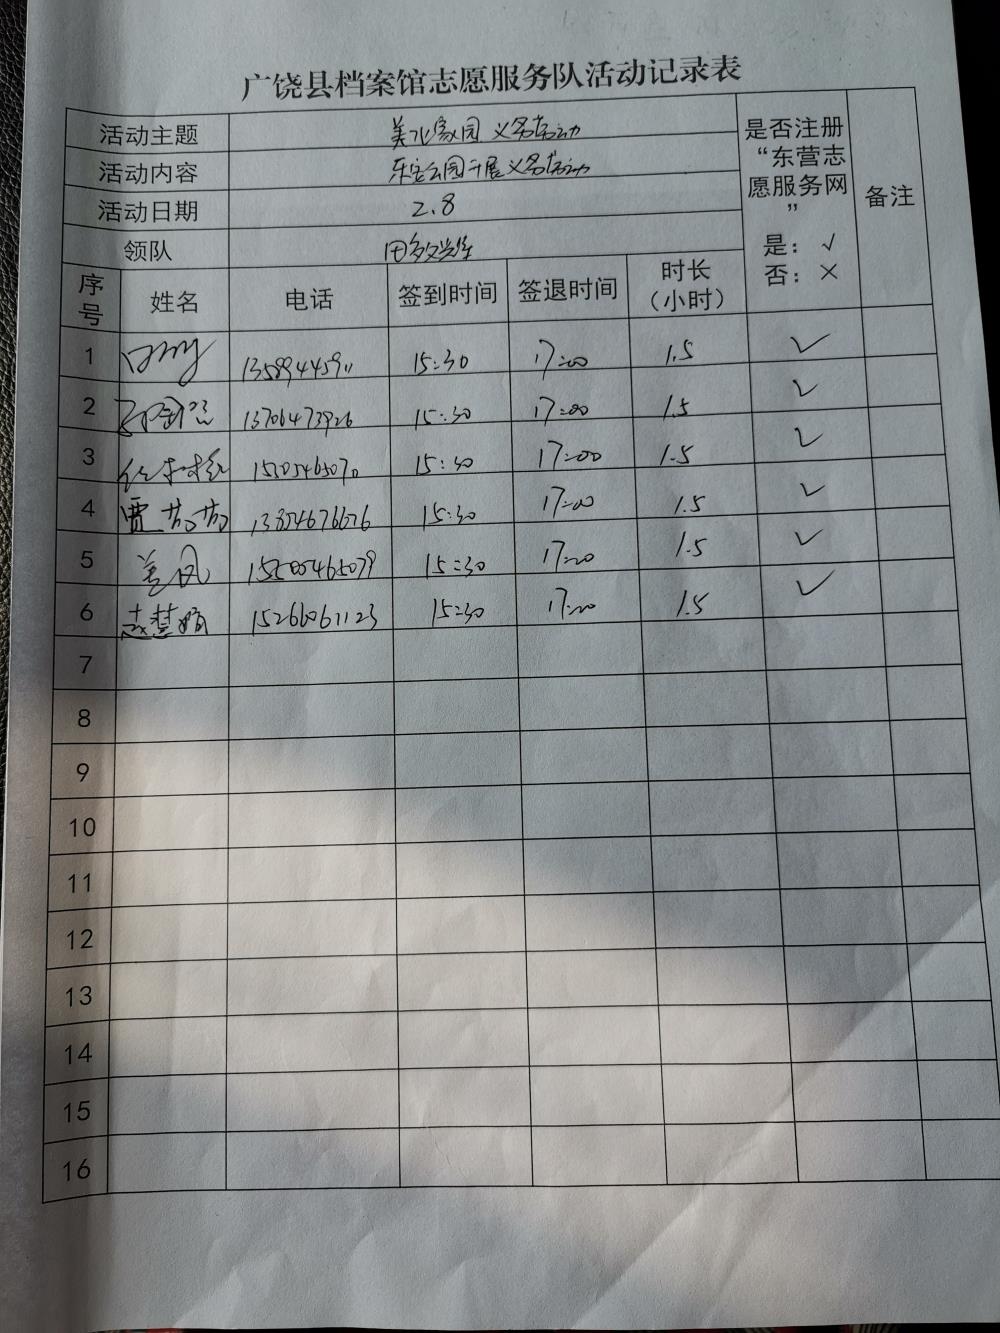 广饶县档案馆志愿服务队活动记录表
活动主题 美化家园 义务劳动
活动内容 乐安公园开展义务劳动
活动日期 2.8
领队
是否注册
“东营志
愿服务网
”
是：√
否：×
备注
序号 姓名 电话 签到时间 签退时间 时长（小时）
1 15:30 17:00 1.5 ✓
2 13706473926 15:30 17:00 1.5 ✓
3 15:30 17:00 1.5 ✓
4 贾芳芳 13854676676 15:30 17:00 1.5 ✓
5 15:30 17:00 1.5 ✓
6 15266061123 15:30 17:00 1.5 ✓
7
8
9
10
11
12
13
14
15
16